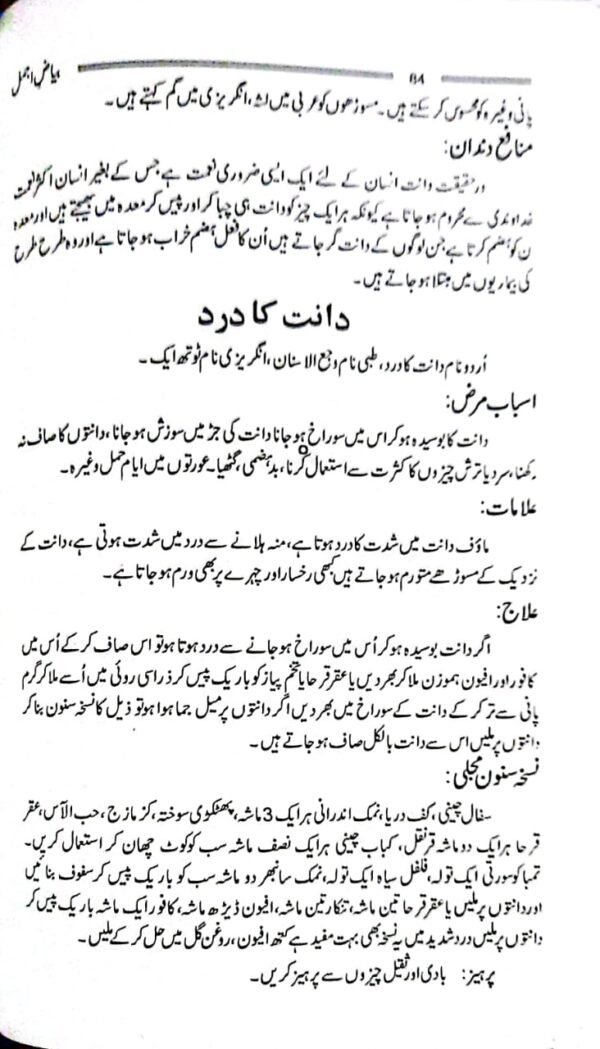 بیاض اجمل
64
پانی وغیرہ کو محسوس کر سکتے ہیں۔ مسوڑھوں کو عربی میں لثہ، انگریزی میں گم کہتے ہیں۔
منافع دندان:
درحقیقت دانت انسان کے لئے ایک ایسی ضروری نعمت ہے جس کے بغیر انسان اکثر نعمت
خداوندی سے محروم ہو جاتا ہے کیونکہ ہر ایک چیز کو دانت ہی چبا کر اور پیس کر معدہ میں بھیجتے ہیں اور معدہ
ن کو ہضم کرتا ہے جن لوگوں کے دانت گر جاتے ہیں اُن کا فعل ہضم خراب ہو جاتا ہے اور وہ طرح طرح
کی بیماریوں میں مبتلا ہو جاتے ہیں۔
دانت کا درد
اُردو نام دانت کا درد، طبی نام وجع الاسنان، انگریزی نام ٹوتھ ایک۔
اسباب مرض:
دانت کا بوسیدہ ہو کر اس میں سوراخ ہو جانا دانت کی جڑ میں سوزش ہو جانا، دانتوں کا صاف نہ
رکھنا، سرد یا ترش چیزوں کا کثرت سے استعمال کرنا، بدہضمی، گٹھیا۔ عورتوں میں ایام حمل وغیرہ۔
علامات:
ماؤف دانت میں شدت کا درد ہوتا ہے، منہ ہلانے سے درد میں شدت ہوتی ہے، دانت کے
نزدیک کے مسوڑھے متورم ہو جاتے ہیں کبھی رخسار اور چہرے پر بھی ورم ہو جاتا ہے۔
علاج:
اگر دانت بوسیدہ ہو کر اُس میں سوراخ ہو جانے سے درد ہوتا ہو تو اس صاف کر کے اُس میں
کافور اور افیون ہموزن ملا کر بھر دیں یا عقرقرحا یا تخم پیاز کو باریک پیس کر ذرا سی روئی میں اُسے ملا کر گرم
پانی سے تر کر کے دانت کے سوراخ میں بھر دیں اگر دانتوں پر میل جما ہوا ہو تو ذیل کا نسخہ سنون بنا کر
دانتوں پر ملیں اس سے دانت بالکل صاف ہو جاتے ہیں۔
نسخہ سنون مجلی:
سفال چینی، کف دریا، نمک اندرانی ہر ایک 3 ماشہ، پھٹکڑی سوختہ، کزمازج، حب الآس، عقر
قرحا ہر ایک دو ماشہ قرنفل، کباب چینی ہر ایک نصف ماشہ سب کو کوٹ چھان کر استعمال کریں۔
تمباکو سورتی ایک تولہ، فلفل سیاہ ایک تولہ، نمک سانبھر دو ماشہ سب کو باریک پیس کر سفوف بنائیں
اور دانتوں پر ملیں یا عقرقرحا تین ماشہ، تنکار تین ماشہ، افیون ڈیڑھ ماشہ، کافور ایک ماشہ باریک پیس کر
دانتوں پر ملیں درد شدید میں یہ نسخہ بھی بہت مفید ہے کتھ افیون، روغن گل میں حل کر کے ملیں۔
پرہیز: بادی اور ثقیل چیزوں سے پرہیز کریں۔